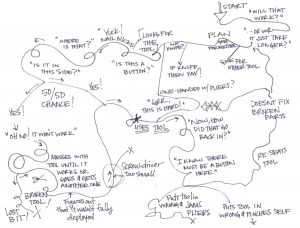 START
"WILL THAT
WORK?"
"WHERE
IS THAT?"
"YUCK
NAIL NICKS"
LOOKS FOR
THE
TOOL
PLAN
"OR WILL
IT JUST TAKE
LONGER?"
"IS IT IN
THIS SIDE?"
"IS THIS A
BUTTON?"
IF KNIFE,
THEN YAY!
GOES FOR
OTHER TOOL
YES!
50/50
CHANCE!
YES!
ONE-HANDER W/PLIERS?
"GRR...
THIS IS HARD!"
DOESN'T FIX
BROKEN
PARTS
USES TOOL
"NOW, HOW
DID THAT GO
BACK IN?"
"OH NO! IT WON'T WORK"
MESSES WITH
TOOL UNTIL IT
WORKS OR
GOES & GETS
ANOTHER ONE
Screwdriver
too small
"I KNOW
THERE
MUST BE
A BUTTON
HERE."
RE-SEATS
TOOL
BREAKS
TOOL!
LOST
BIT!
Figures out
that it wasn't fully
deployed
Puts tool in
WRONG & JAMS
PLIERS
PUTS TOOL IN
WRONG & PINCHES SELF